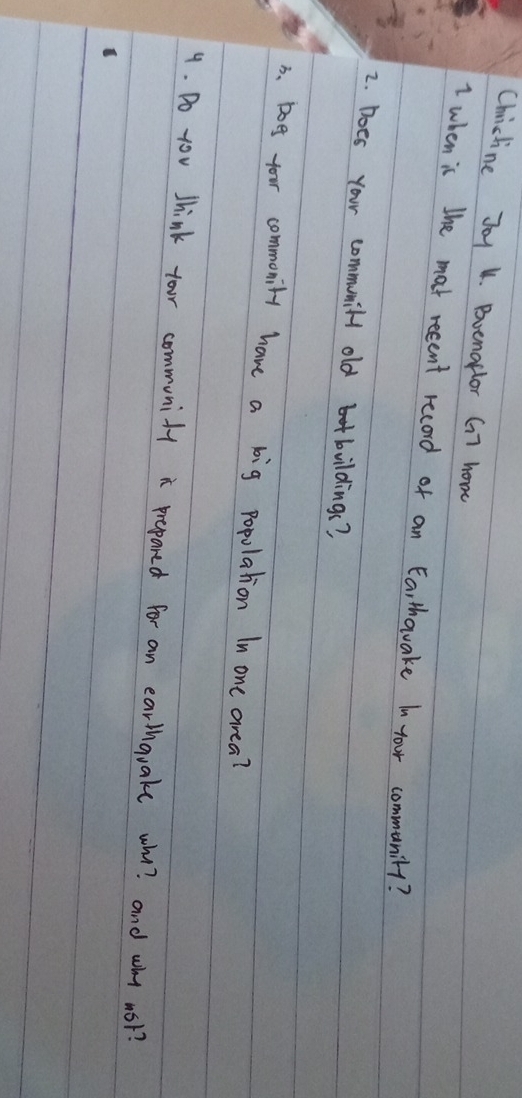 Christine Joy V. Buenaflor G7 hope
1 when is the most recent record of an Earthquake In your community?
2. Does your community old buildings?
3. Does your community have a big population In one area?
4. Do you think your community is prepared for an earthquake why? and why not?